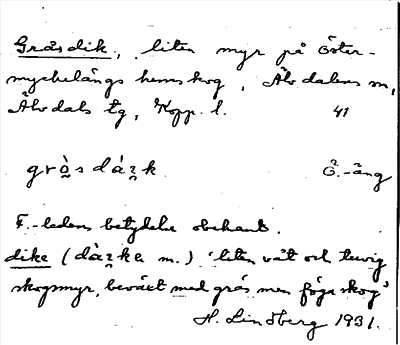 Gråsdik, liten myr på Öster-
myckelängs hemskog, Älvdalens sn,
Älvdals tg, Kopp. l. 41
grò̱sdáı̯k Ö.-äng
F.-ledens betydelse obekant.
dike (dàı̯ke m.) 'liten våt och tuvig
skogsmyr, beväxt med gräs men föga skog'
H. Lindberg 1931.